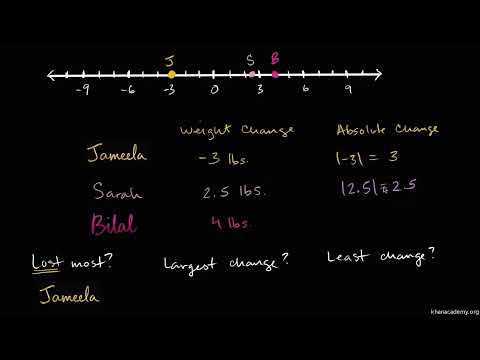 J S B
-9 -6 -3 0 3 6 9
Weight Change Absolute Change
Jameela -3 lbs. |-3| = 3
Sarah 2.5 lbs. |2.5| = 2.5
Bilal 4 lbs.
Lost most? Largest change? Least change?
Jameela
khanacademy.org